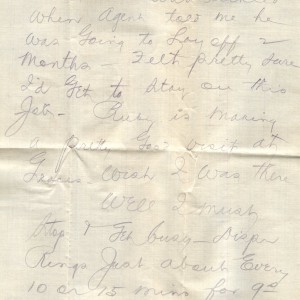 When Agent told me he
was Going to Lay off 2
Months - Felt pretty sure
I'd Get to Stay on this
Job - Ruby is Making
a pretty Good visit at
Wish I was there
Well I must
Stop & Get busy - Dispr
Rings Just about Every
10 or 15 mins for 9